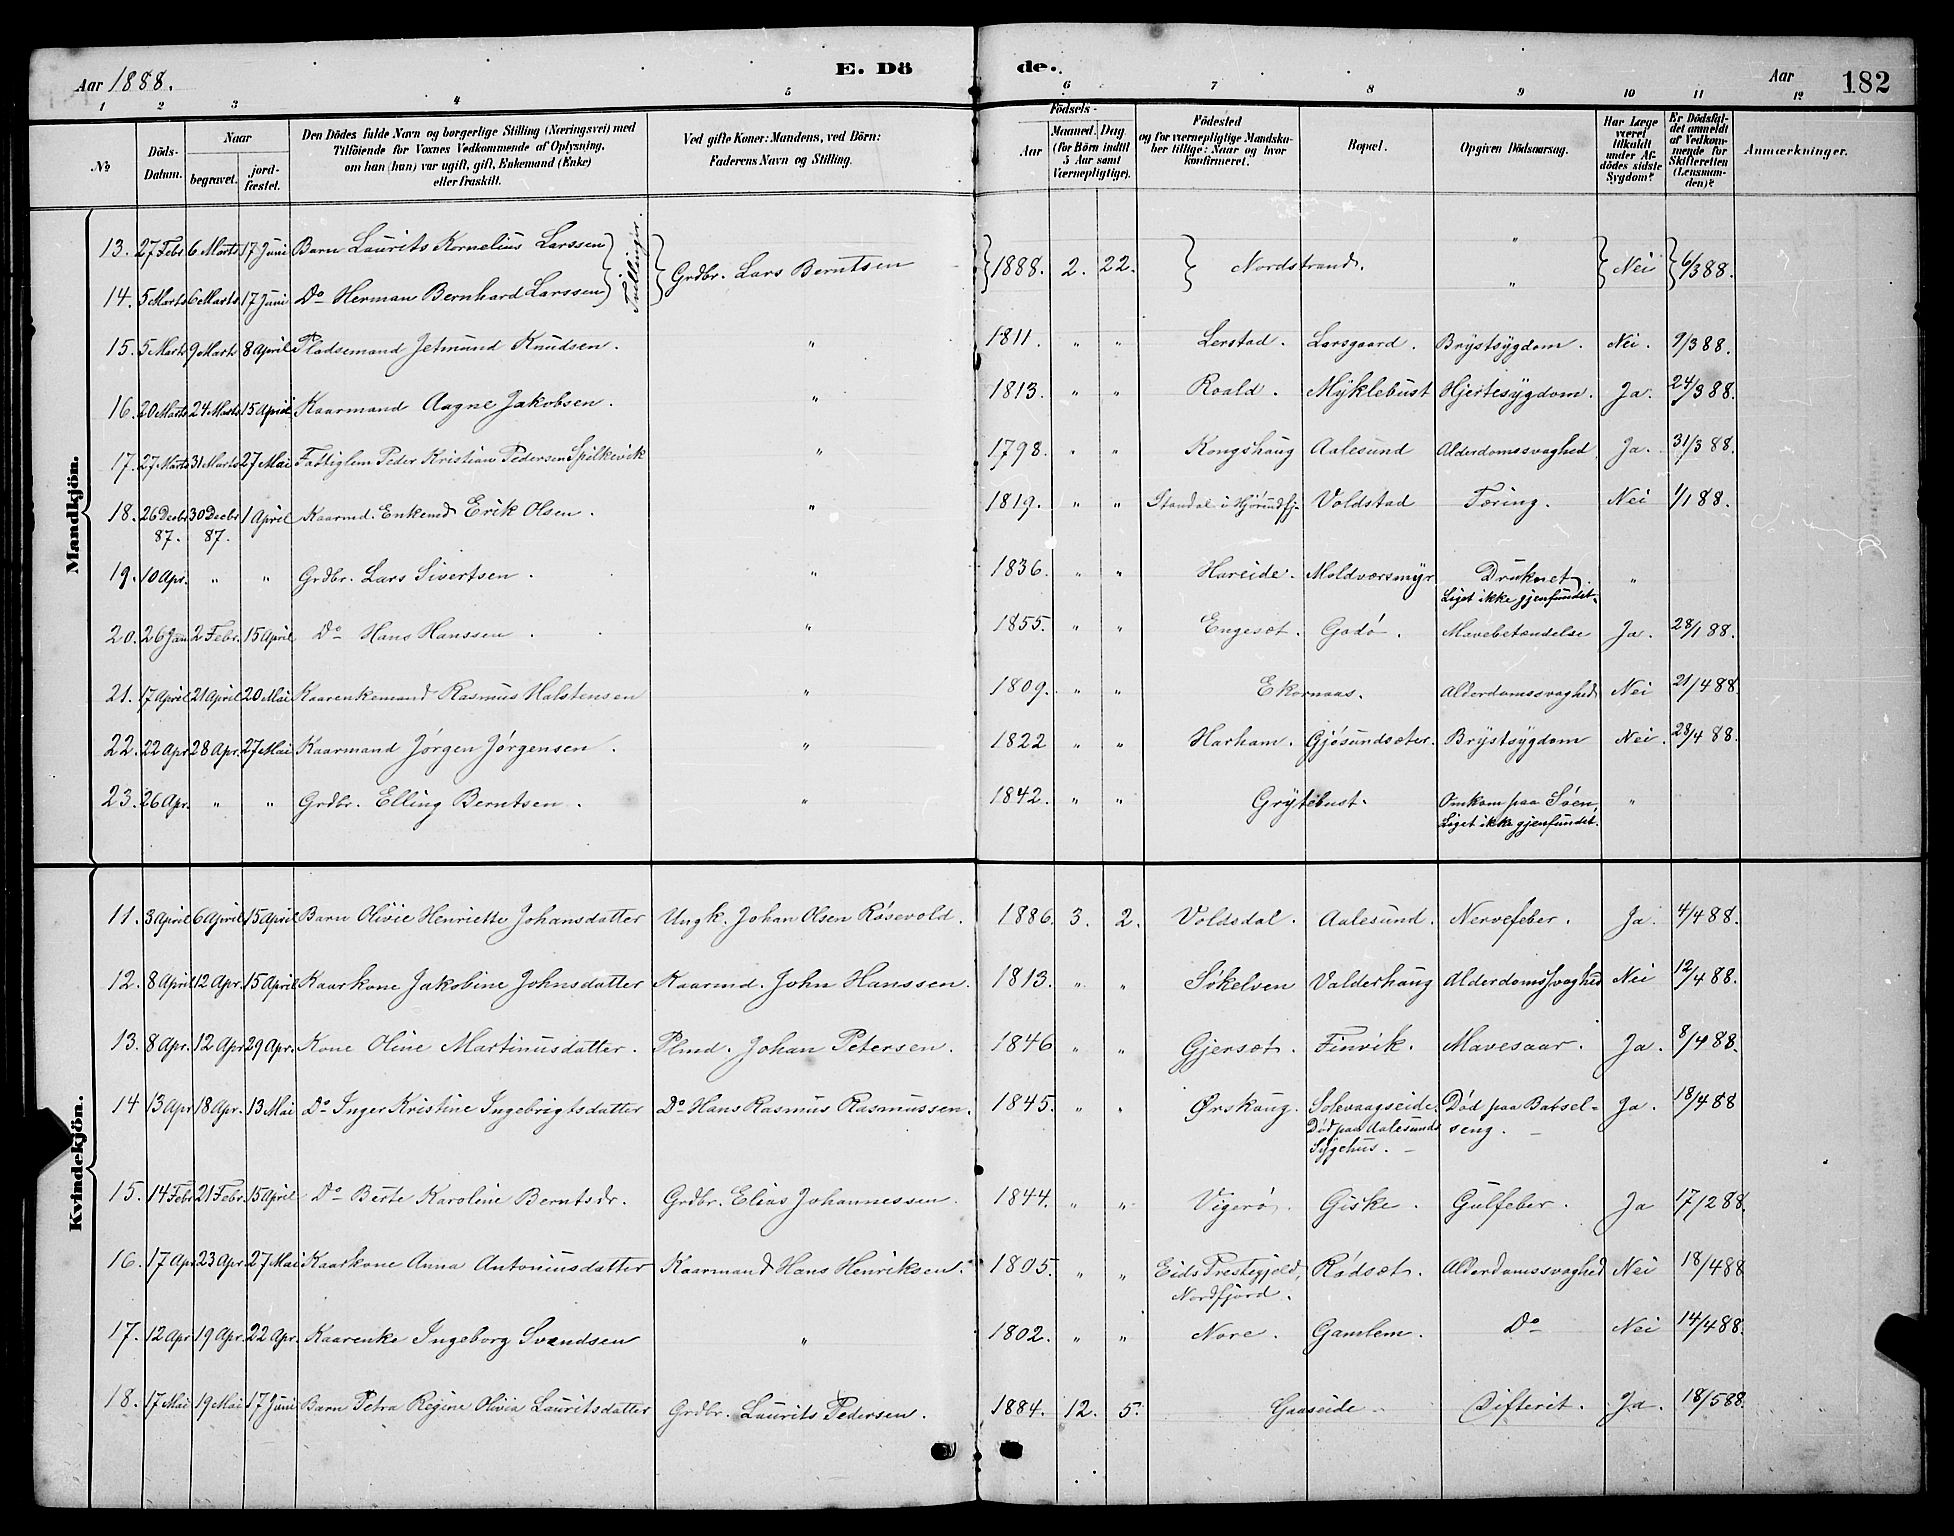 Aar 1888. E. Dö de. Aar 182
1 2 3 4 5 6 7 8 9 10 11 12
No Döds-Datum. Naar begravet. jordfæstet. Den Dödes fulde Navn og borgerlige Stilling (Næringsvei) med Tilföiende for Voxnes Vedkommende af Oplysning, om han (hun) var ugift, gift, Enkemand (Enke) eller fraskilt. Ved gifte Koner: Mandens, ved Börn: Faderens Navn og Stilling. Födsels- Aar Maaned. Dag (for Börn indtil 5 Aar samt Værnepligtige). Födested og for værnepligtige Mandskaber tillige: Naar og hvor konfirmeret. Bopæl. Opgiven Dödsaarsag. Har Læge været tilkaldt under Afdödes sidste Sygdom? Er Dödsfaldet anmeldt af Vedkommende for Skifteretten (Lensmanden)? Anmærkninger.
Mandkjön.
13. 27 Febr 6 Marts 17 Juni Barn Laurits Kornelius Larssen Tvillinger. Grdbr. Lars Berntsen 1888. 2. 22. Nordstrand. " Nei 6/3 88.
14. 5 Marts 6 Marts 17 Juni Do Herman Bernhard Larssen "
15. 5 Marts 9 Marts 8 April Pladsemand Jetmund Knudsen. " 1811. " " Lerstad. Larsgaard. Brystsygdom. Nei. 9/3 88.
16. 20 Marts 24 Marts 15 April Kaarmand Aagne Jakobsen. " 1813. " " Roald. Myklebust Hjertesygdom. Ja. 24/3 88.
17. 27 Marts 31 Marts 27 Mai Fattiglem Peder Kristian Pedersen Spilkevik " 1798. " " Kongshaug Aalesund Alderdomssvaghed Ja. 31/3 88.
18. 26 Decbr 87. 30 Decbr 87. 1 April Kaarmd. Enkemd Erik Olsen. " 1819. " " Standal i Hjörundfj. Voldstad Tæring. Nei 1/1 88.
19. 10 Apr. " " Grdbr. Lars Sivertsen. " 1836. " " Hareide. Moldværsmyr Druknet. "
Liget ikke gjenfundet.
20. 26 Jan 2 Febr. 15 April Do Hans Hanssen. " 1855. " " Engeset. Godö. Mavebetændelse Ja. 28/1 88.
21. 17 April 21 April 20 Mai Kaarenkemand Rasmus Halstensen " 1809. " " Ekornaas. Alderdomssvaghed Nei 21/4 88.
22. 22 Apr 28 Apr. 27 Mai Kaarmand Jörgen Jörgensen. " 1822 " " Harham. Gjösundsæter. Brystsygdom Nei. 28/4 88.
23. 26 Apr. " " Grdbr. Elling Berntsen. " 1842. " " Grytebust. Omkom paa Söen, "
Liget ikke gjenfundet.
Kvindekjön.
11. 3 April 6 April 15 April Barn Olivie Henriette Johansdatter Ungk. Johan Olsen Rösevold. 1886. 3. 2. Voldsdal. Aalesund. Nervefeber. Ja. 4/4 88.
12. 8 April 12 Apr. 15 April Kaarkone Jakobine Johnsdatter Kaarmd. John Hanssen. 1813. " " Sökelven Valderhaug Alderdomssvaghed Nei 12/4 88.
13. 8 Apr. 12 Apr 29 Apr. Kone Oline Martinusdatter. Plmd. Johan Petersen. 1846 " " Gjerset. Finvik. Mavesaar. Ja. 8/4 88.
14 13 Apr 18 Apr. 13 Mai Do Inger Kristine Ingebrigtsdatter Do Hans Rasmus Rasmussen. 1845. " " Ørskaug. Solevaagseide. Død paa Barsel- Ja. 18/4 88
Død paa Aalesunds seng.
Sygehus.
15. 14 Febr 21 Febr. 15 April Do Berte Karoline Berntsdr. Grdbr. Elias Johannessen. 1844. " " Vigerö. Giske. Gulfeber. Ja 17/2 88.
16. 17 Apr 23 Apr 27 Mai Kaarkone Anna Antoniusdatter Kaarmand Hans Henriksen. 1805. " " Eids Prestegjeld, Rödset. Alderdomssvaghed Nei 18/4 88
Nordfjord.
17. 12 Apr 19 Apr. 22 Apr. Kaarenke Ingeborg Svendsen " 1802. " " Nore. Gamlem. Do Nei 14/4 88.
18. 17 Mai 19 Mai 17 Juni Barn Petra Regine Olivia Lauritsdatter Grdbr. Laurits Pedersen. 1884. 12. 5. Gaaseide. Difterit. Ja. 18/5 88.